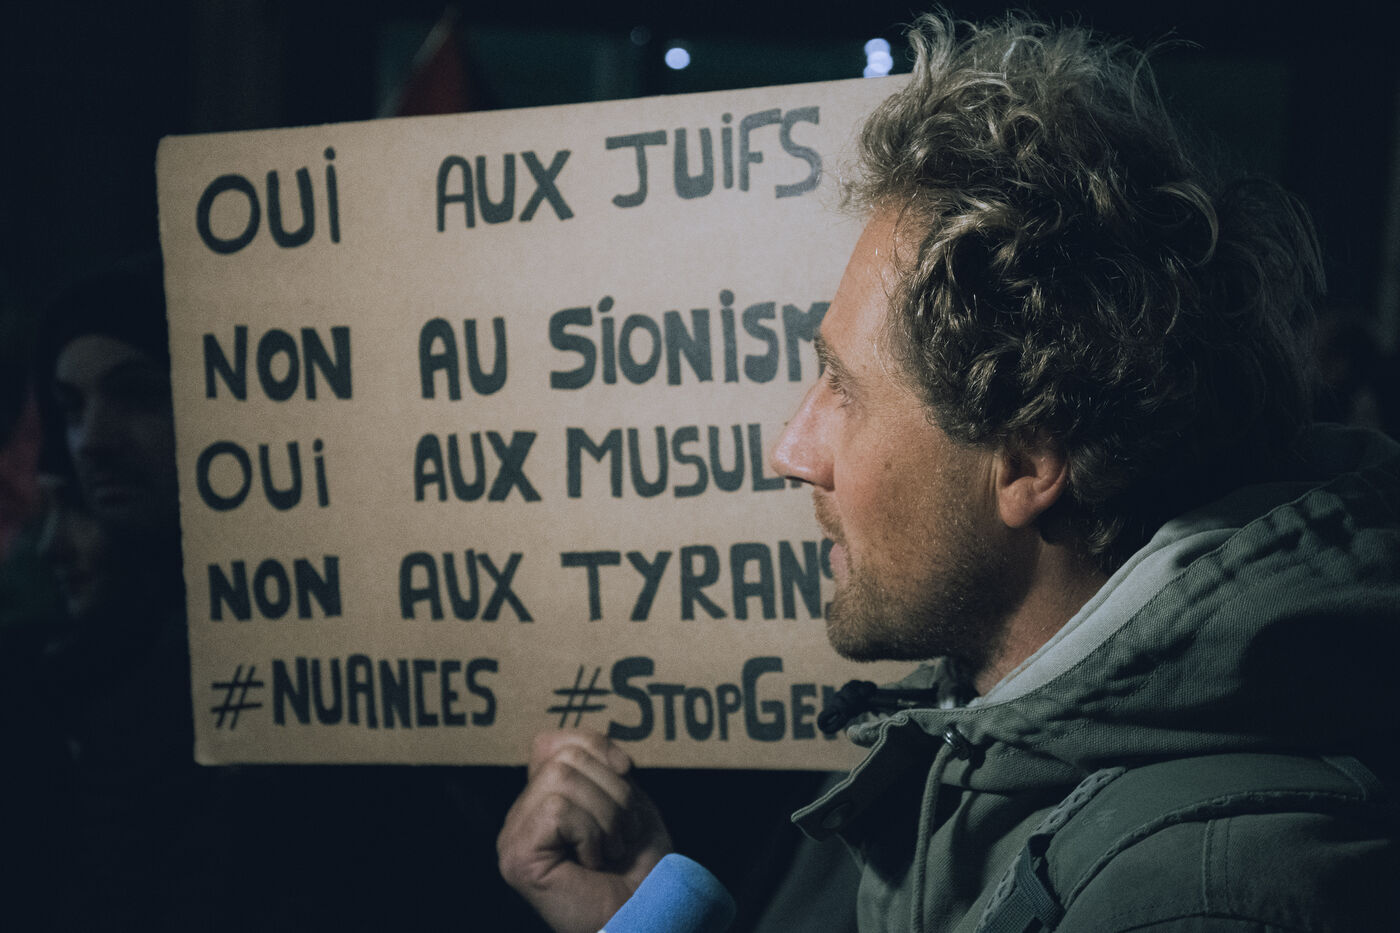 OUi AUX JUiFS
NON AU SiONiSM
OUi AUX MUSUL
NON AUX TYRANS
#NUANCES #STOPGE